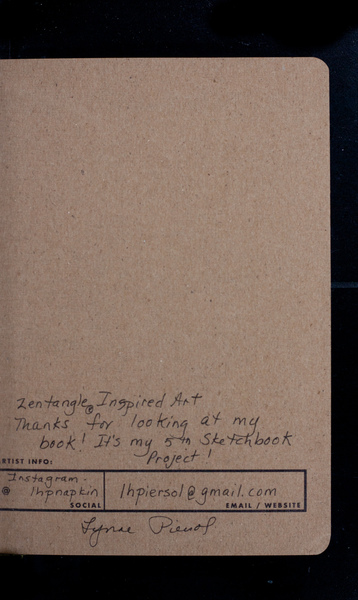 Zentangle® Inspired Art
Thanks for looking at my
book! It's my 5th Sketchbook
Project!
RTIST INFO:
Instagram.
@ lhpnapkin
SOCIAL
lhpiersol@gmail.com
EMAIL / WEBSITE
Piersol